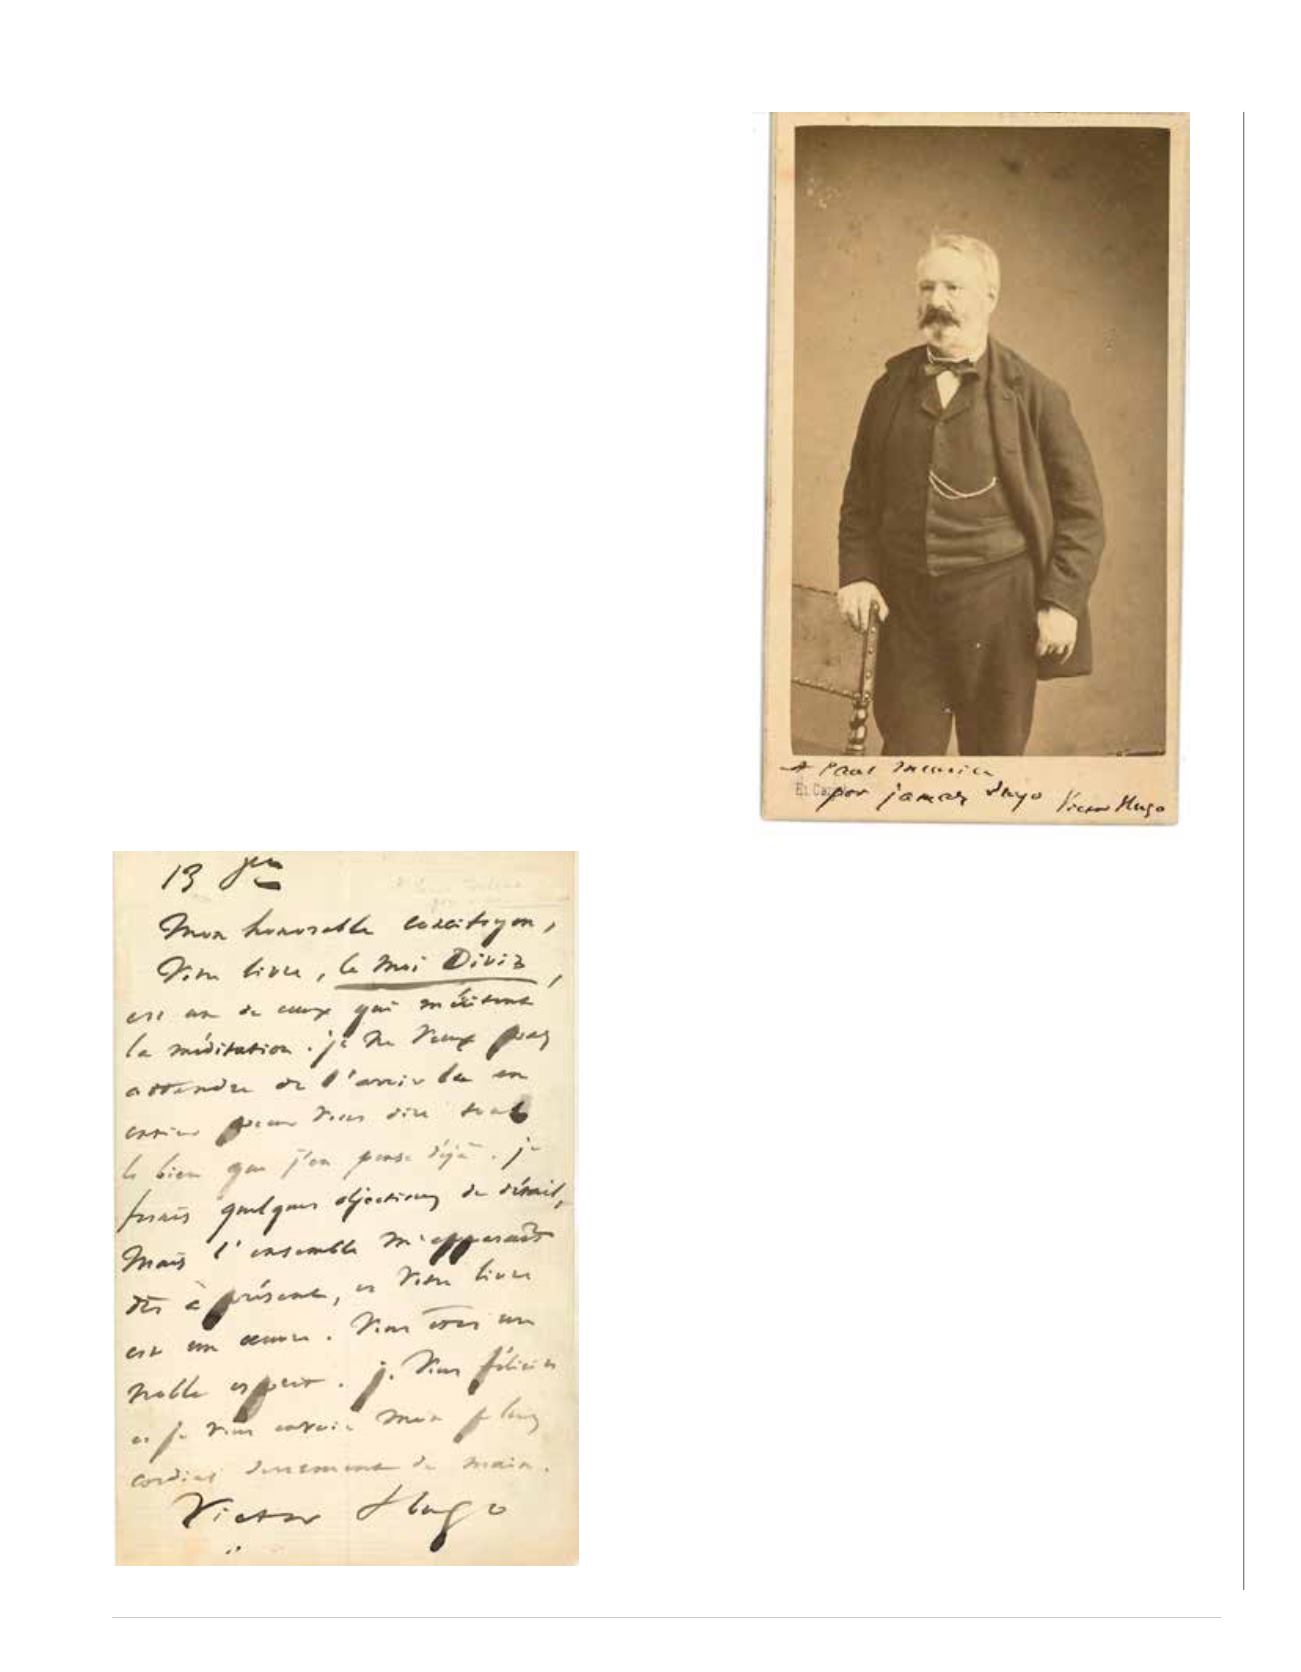 A Paul Meurice
por jamas Hugo Victor Hugo
Et. Car
13 Jer
Mon honorable concitoyen,
Votre livre, le Moi Divin,
est un de ceux qui méritent
la méditation. je ne veux pas
attendre de l'avoir lu en
entier pour vous dire tout
le bien que j'en pense déjà. je
ferais quelques objections de détail,
mais l'ensemble m'apparaît
dès à présent, et votre livre
est une œuvre. Vous êtes un
noble esprit. je vous félicite
et je vous envoie mon plus
cordial serrement de main.
Victor Hugo